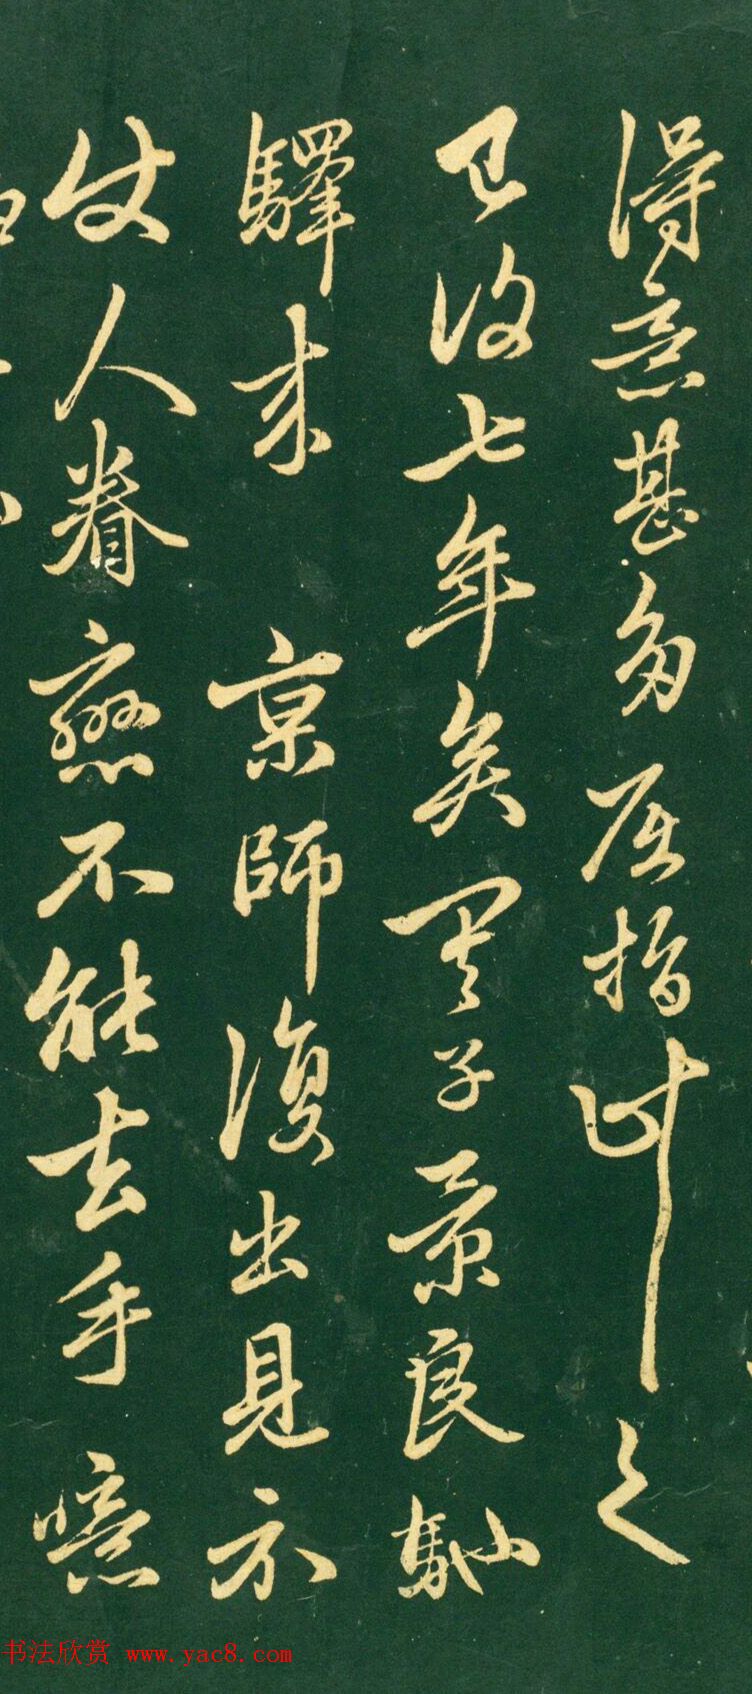 得意甚多屈指計之
已後七年矣其子景良馳
驛來 京師復出見示
仗人眷戀不能去手噫
书法欣赏 www.yac8.com